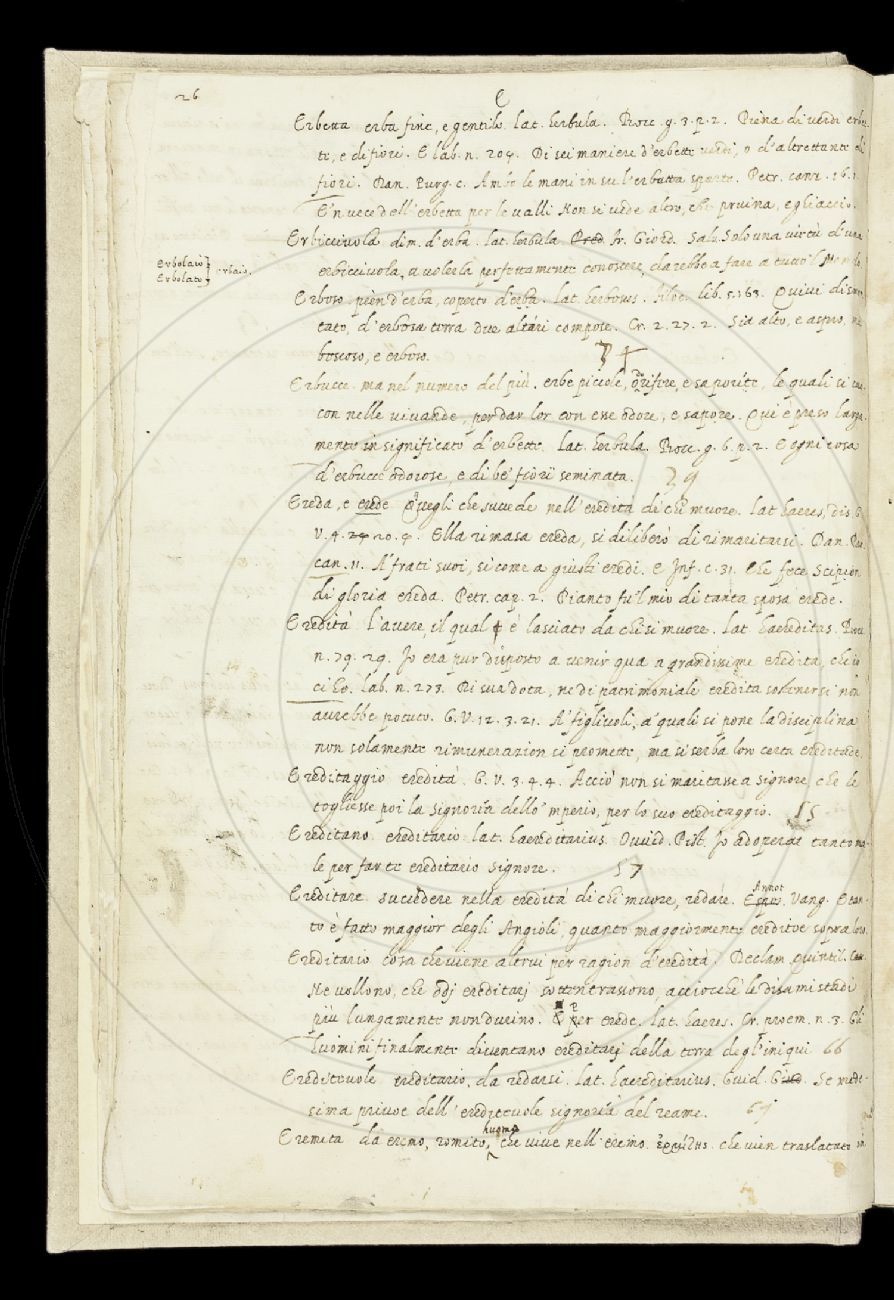 26
E
Erbetta erba fine, e gentile. lat. herbula. Bocc. g. 3. p. 2. Piena di verdi erbet
te, e di fiori. E lab. n. 209. Di sei maniere d'erbette verdi, o d'altrettante di
fiori. Dan. Purg. c. Ambo le mani in su l'erbetta sparte. Petr. canz. 16. 1.
E'n vece dell'erbetta per le valli Non si vede altro, che pruina, e ghiaccio.
Erbicciuola dim. d'erba. lat. herbula Pred. Fr. Giord. Salv. Solo una virtù d'una
Erbolaio
Erbolato } erbaio.
erbicciuola, a volerla perfettamente conoscere, darebbe a fare a tutto'l Mondo.
Erboso pien d'erba, coperto d'erba. lat. herbosus. Filoc. lib. 5. 163. Quivi di smon
tato, d'erbosa terra due altari compose. Cr. 2. 27. 2. Sia alto, e aspro, ne
boscoso, e erboso. 74
Erbucce. ma nel numero del più. erbe piccole, orifere, e saporite, le quali si cuo
con nelle vivande, per dar lor con esse odore, e sapore. Qui è preso larga-
mente in significato d'erbette. lat. herbula. Bocc. g. 6. p. 2. E ogni cosa
d'erbucce odorose, e di be' fiori seminata. 79
Ereda, e erede Quegli che succede nell'eredità di chi muore. lat haeres, dis. G.
V. 4. 20. 4. Ella rimasa ereda, si diliberò di rimaritarsi. Dan. Par.
can. 11. A' frati suoi, si come a giusti eredi. e Inf. c. 31. Che fece Scipion
di gloria ereda. Petr. cap. 2. Pianto fu'l mio di tanta sposa erede.
Eredità l'avere, il qual è lasciato da chi si muore. lat haereditas. Bocc.
n. 79. 29. Io era pur disposto a venir qua a grandissime eredità, che io
ci ho. lab. n. 273. Di sua dota, ne di patrimoniale eredità sostenersi non
aurebbe potuto. G. V. 12. 3. 21. A' figliuoli, a' quali si pone la disciplina
non solamente rimunerazion si promette, ma si serba loro certa ereditade.
Ereditaggio eredità. G. V. 3. 4. 4. Acciò non si maritasse a signore, che le
togliesse poi la signoria dello'mperio, per lo suo ereditaggio. 55
Ereditano ereditario lat. haereditarius Ovvid. Pist. Io adoperai tanto ma-
le per far te ereditario signore. 57
Ereditare succedere nella eredità di chi muore, redare. Annot. Vang. E tan-
to è fatto maggior degli Angioli, quanto maggiormente ereditoe sopra loro.
Ereditario cosa che viene altrui per ragion d'eredità. Declam. Quintil. Can.
Ne vollono, che odj ereditarj sottentrassono, acciocchè le disamistadi
più lungamente non durino. per erede. lat. haeres. Cr. proem. n. 3. Gli
huomini finalmente diventano ereditarj della terra degl'iniqui 66
Ereditevole ereditario, da redarsi. lat. haereditarius. Guid. Giud. Se mede-
sima privoe dell'ereditevole signoria del reame. 69
Eremita da eremo, romito, huomo che vive nell'eremo. ἐρημίτης. che vien traslatato in